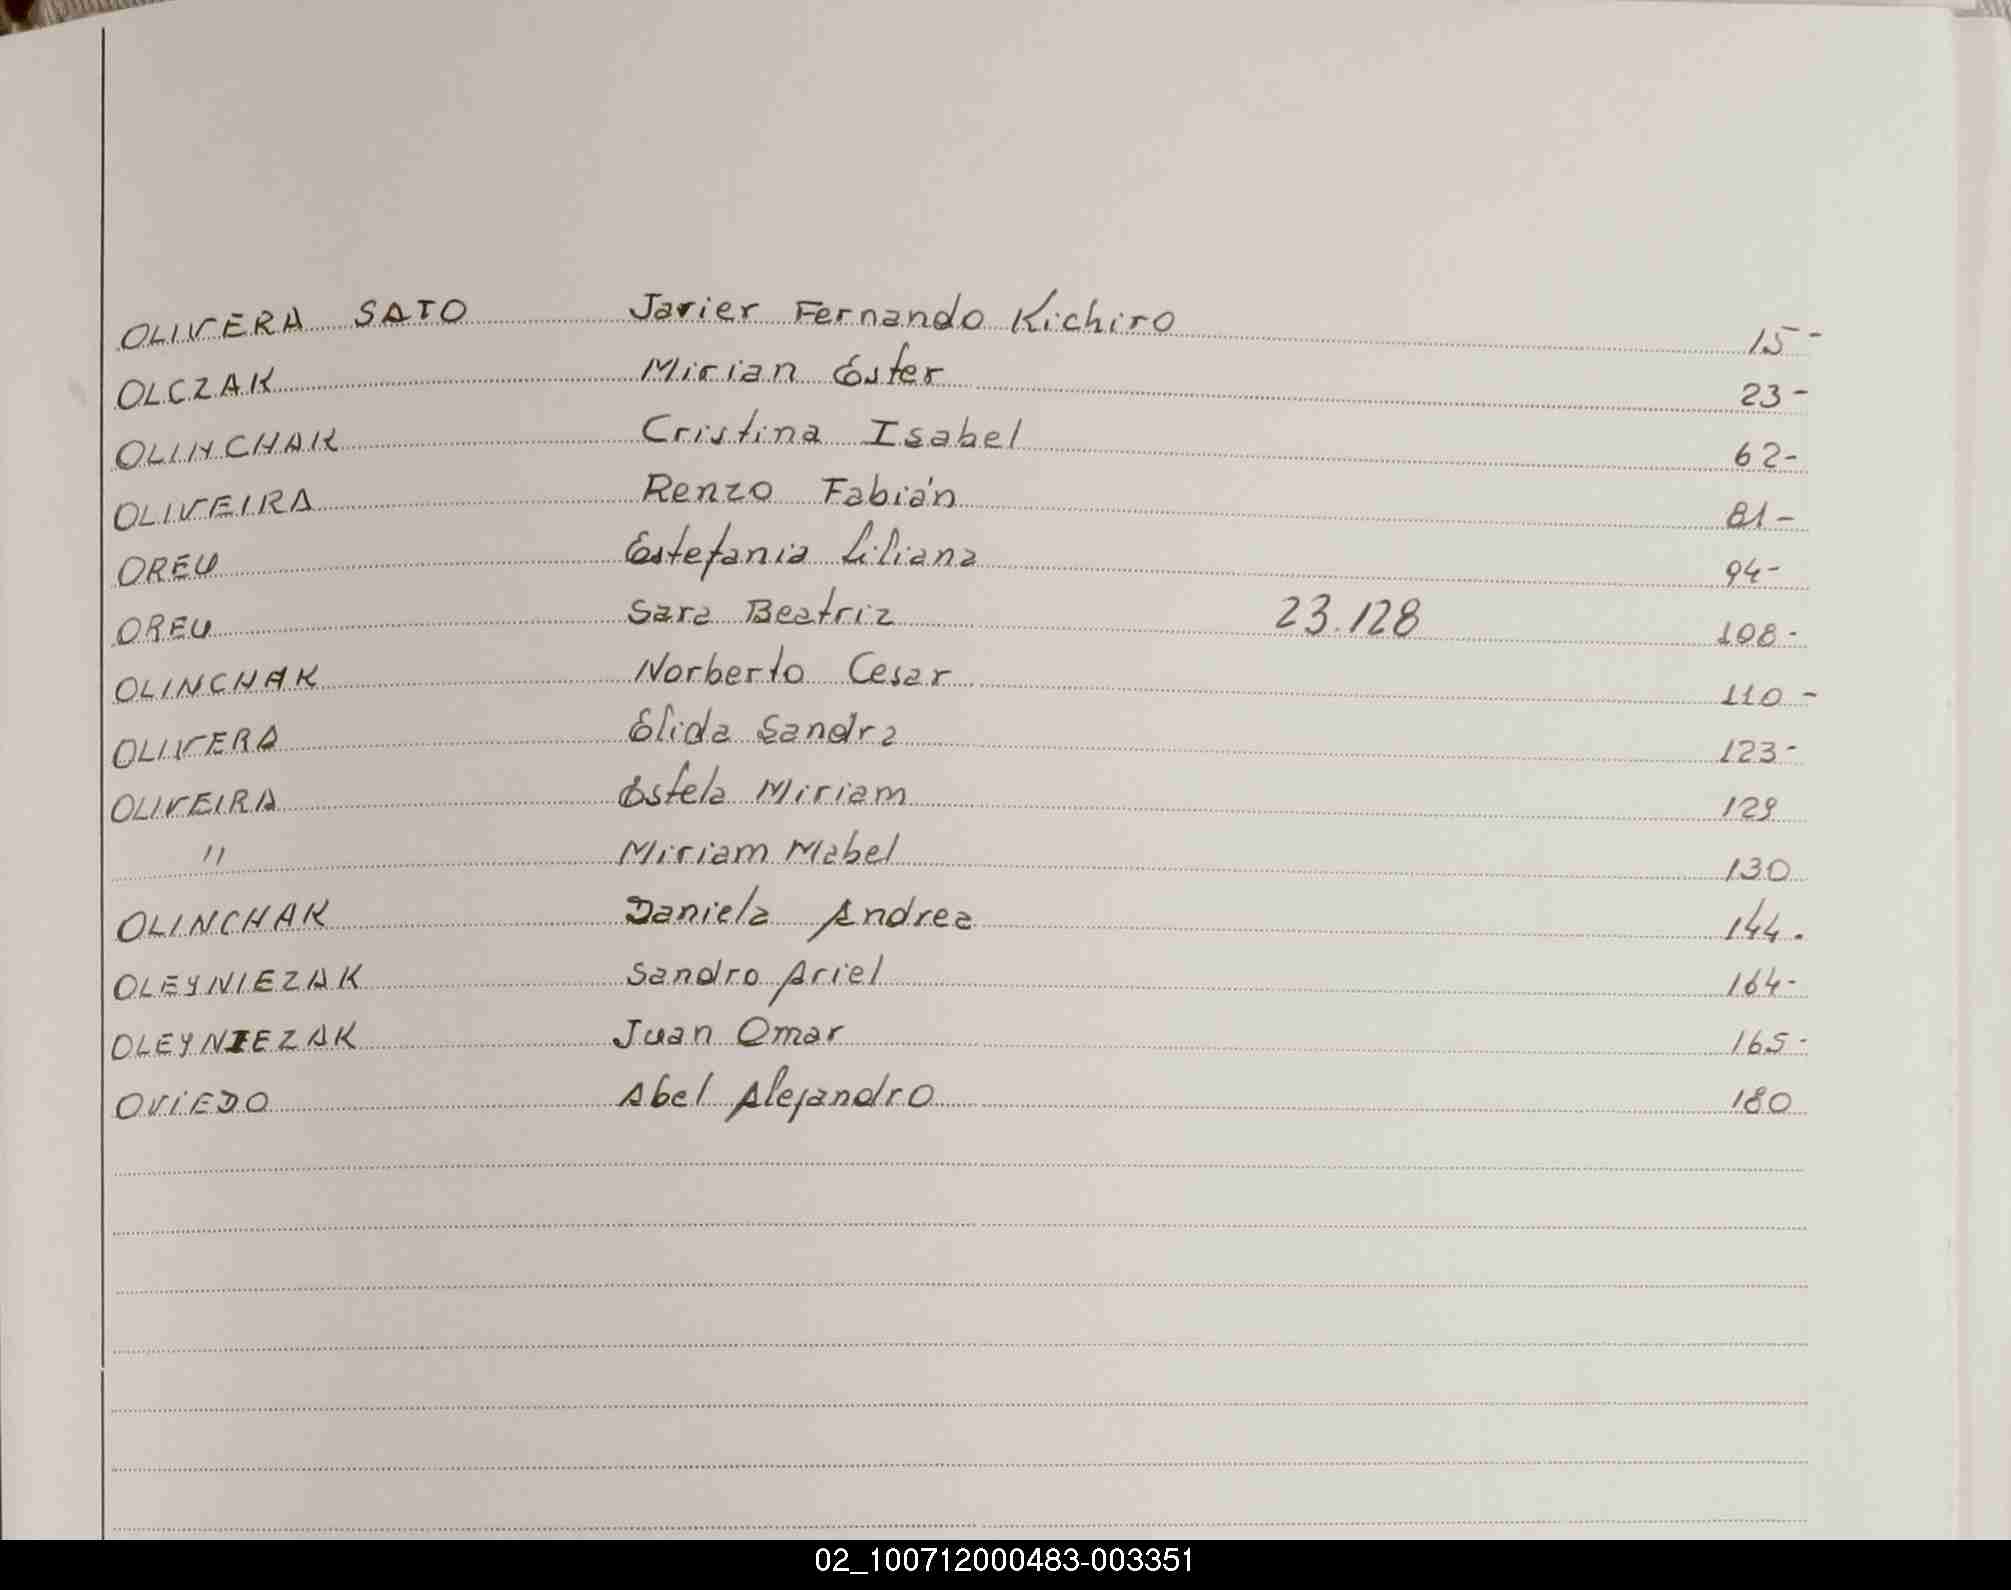 OLIVERA SATO Javier Fernando Kichiro 15-
OLCZAK Mirian Ester 23-
OLINCHAK Cristina Isabel 62-
OLIVEIRA Renzo Fabián 81-
OREU Estefania Liliana 94-
OREU Sara Beatriz 23.128 108-
OLINCHAK Norberto Cesar 110-
OLIVERA Elida Sandra 123-
OLIVEIRA Estela Miriam 129
" Miriam Mabel 130
OLINCHAK Daniela Andrea 144.
OLEYNIEZAK Sandro Ariel 164-
OLEYNIEZAK Juan Omar 165-
OViEDO Abel Alejandro 180
02_100712000483-003351